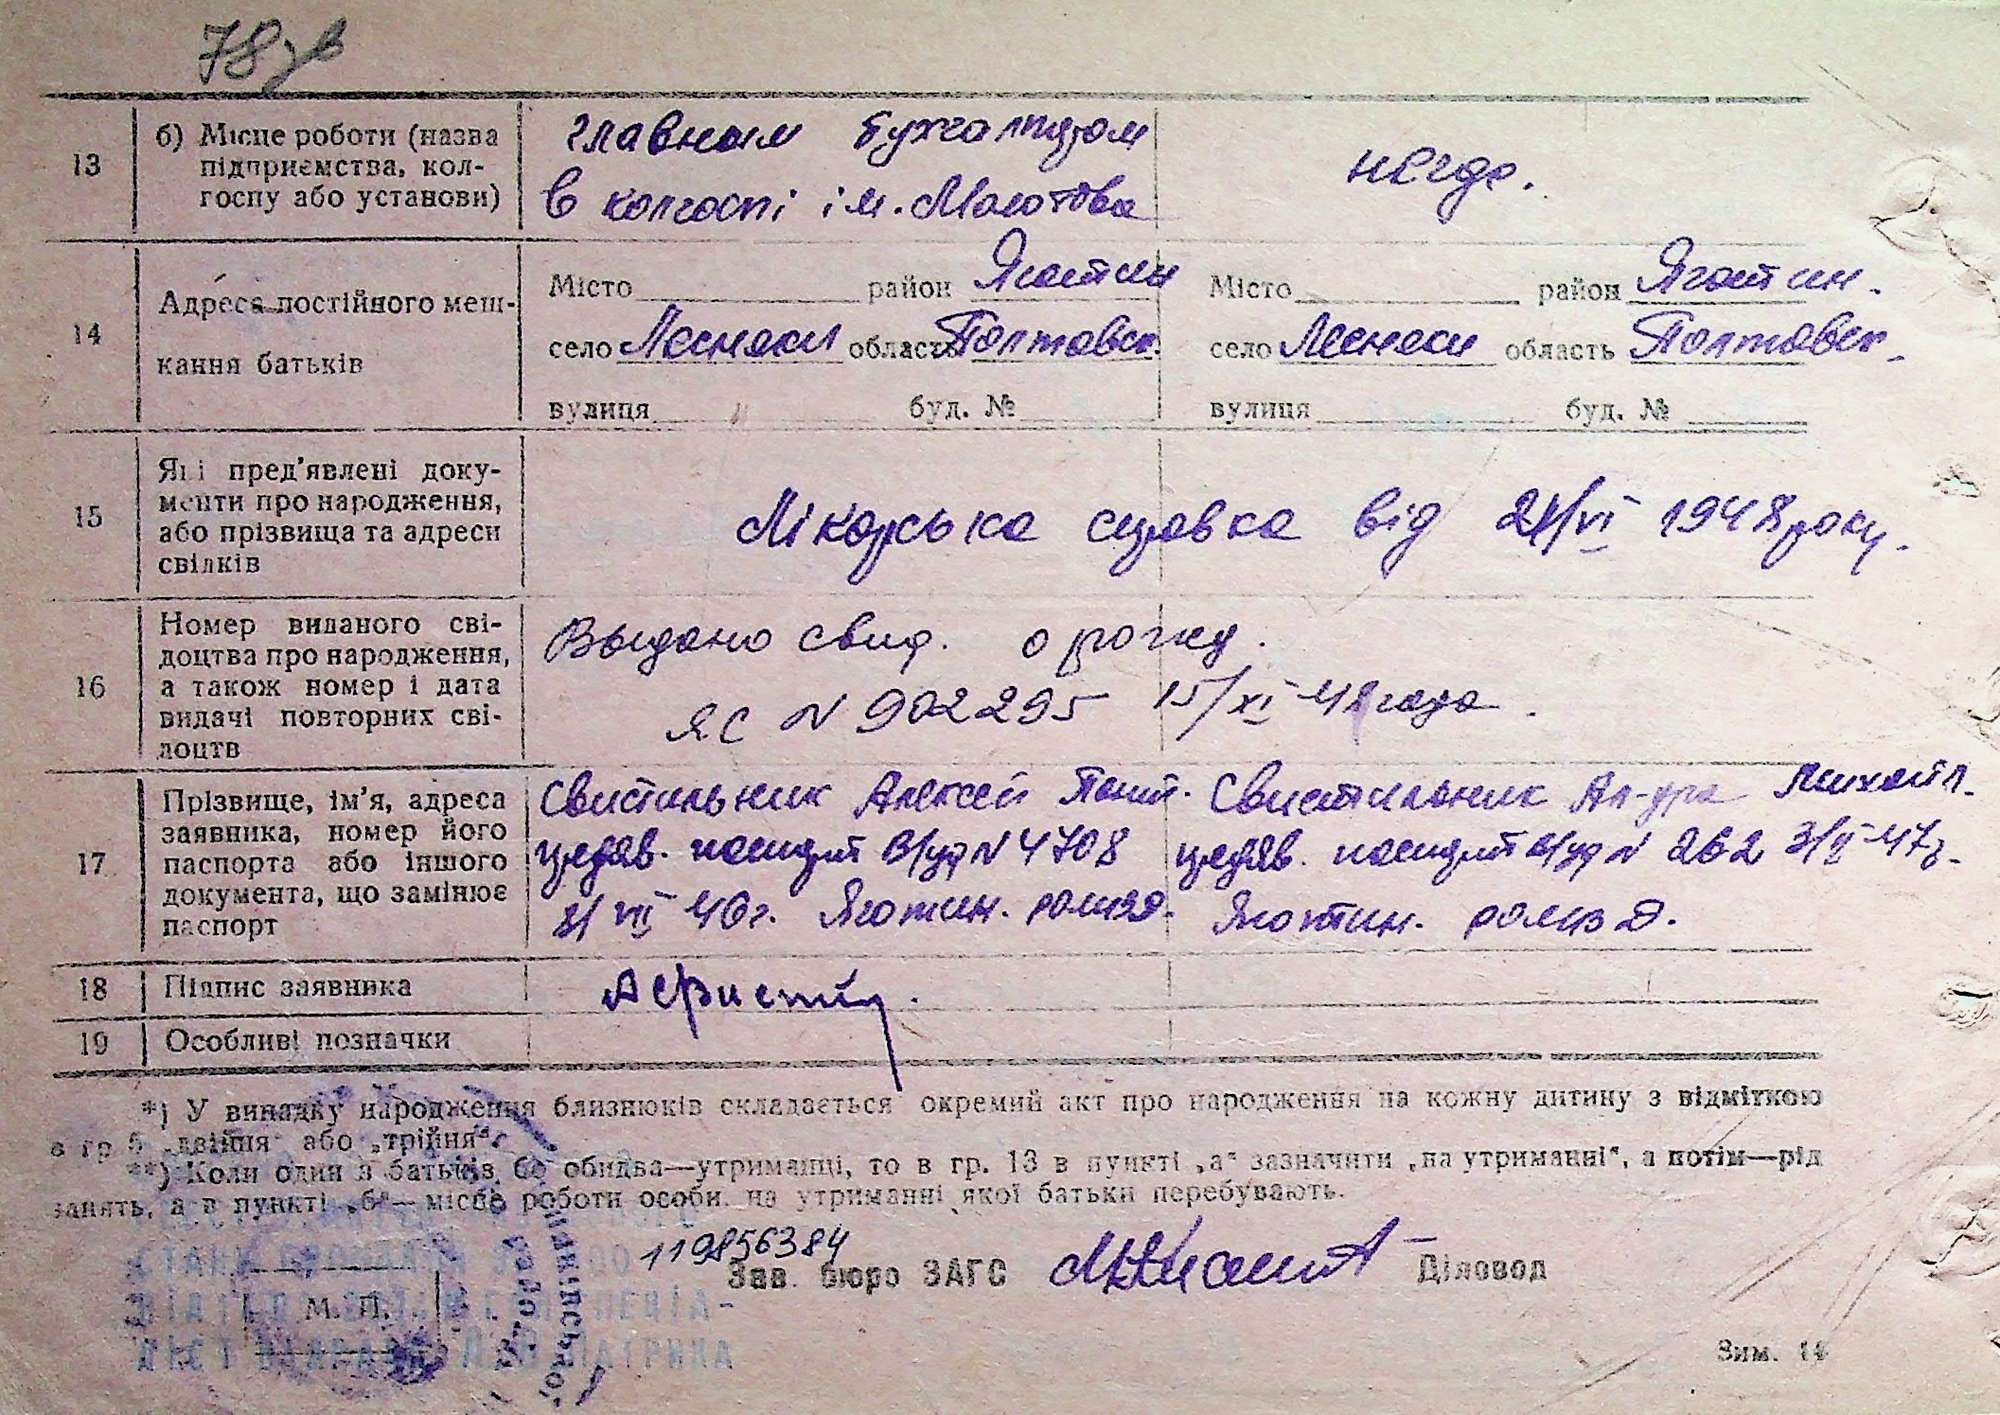 78зв
13
б) Місце роботи (назва
підприємства, кол-
госпу або установи)
главным бухгалтером
в колгоспі ім. Молотова
негде.
14
Адреса постійного меш-
кання батьків
Місто район Яготин
село Лесняки область Полтавск.
вулиця " буд. №
Місто район Яготин.
село Лесняки область Полтавск.
вулиця буд. №
15
Які пред'явлені доку-
менти про народження,
або прізвища та адреси
свідків
Лікарська справка від 21/VI 1948 року.
16
Номер виданого сві-
доцтва про народження,
а також номер і дата
видачі повторних сві-
доцтв
Выдано свид. о рожд.
ЯС N 902295 15/XI-48 года.
17
Прізвище, ім'я, адреса
заявника, номер його
паспорта або іншого
документа, що замінює
паспорт
Свистильник Алексей
предяв. N 4708
VII 46г. Яготин.
Свистильник Ал-дра Михайл.
предяв. N 262 47г.
Яготин.
18
Підпис заявника
19
Особливі позначки
*) У випадку народження близнюків складається окремий акт про народження на кожну дитину з відміткою
в гр 5 „двійня“ або „трійня“.
**) Коли один з батьків, бо обидва—утриманці, то в гр. 13 в пункті „а“ зазначити „на утриманні“, а потім—рід
занять, а в пункті „б“—місце роботи особи, на утриманні якої батьки перебувають.
119856384
Зав. бюро ЗАГС Діловод
М. П.
Зим. 14